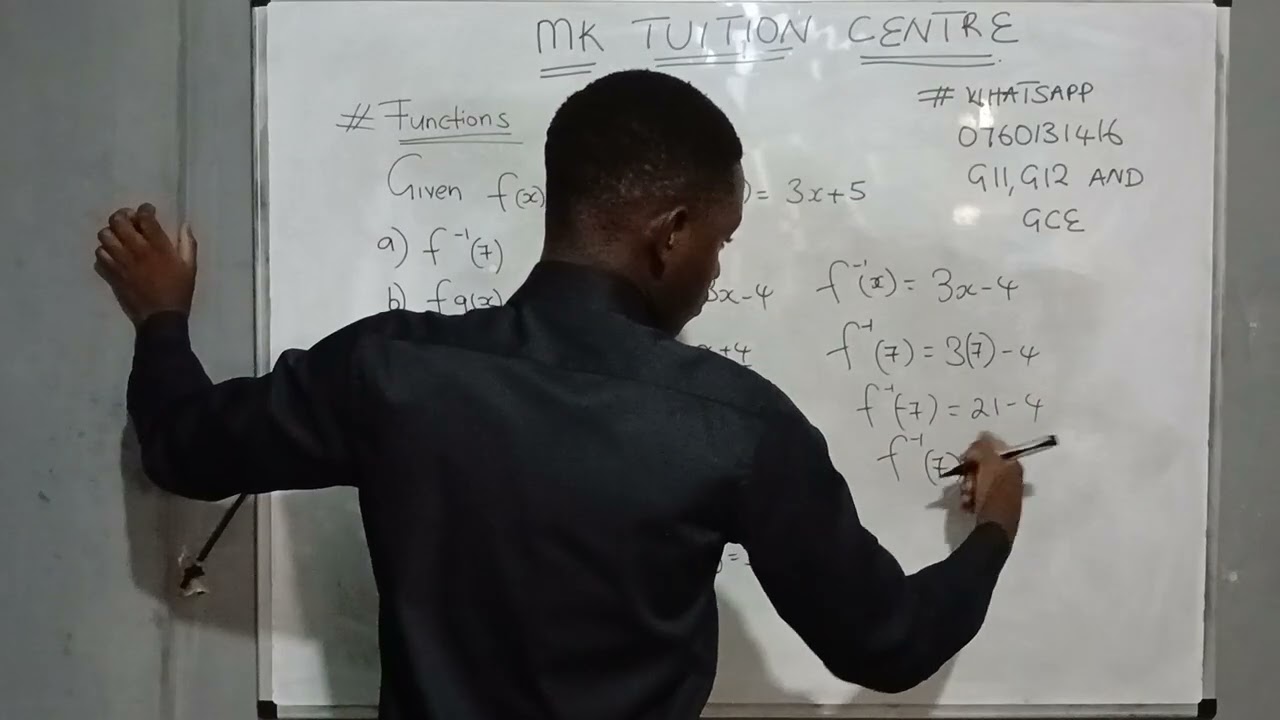 MK TUITION CENTRE
# Functions
# WHATSAPP
0760131416
G11, G12 AND
GCE
Given f(x) ) = 3x+5
a) f⁻¹(7)
b) fg(x)
3x-4
+4
f⁻¹(x) = 3x-4
f⁻¹(7) = 3(7)-4
f⁻¹(7) = 21-4
f⁻¹(7)
=